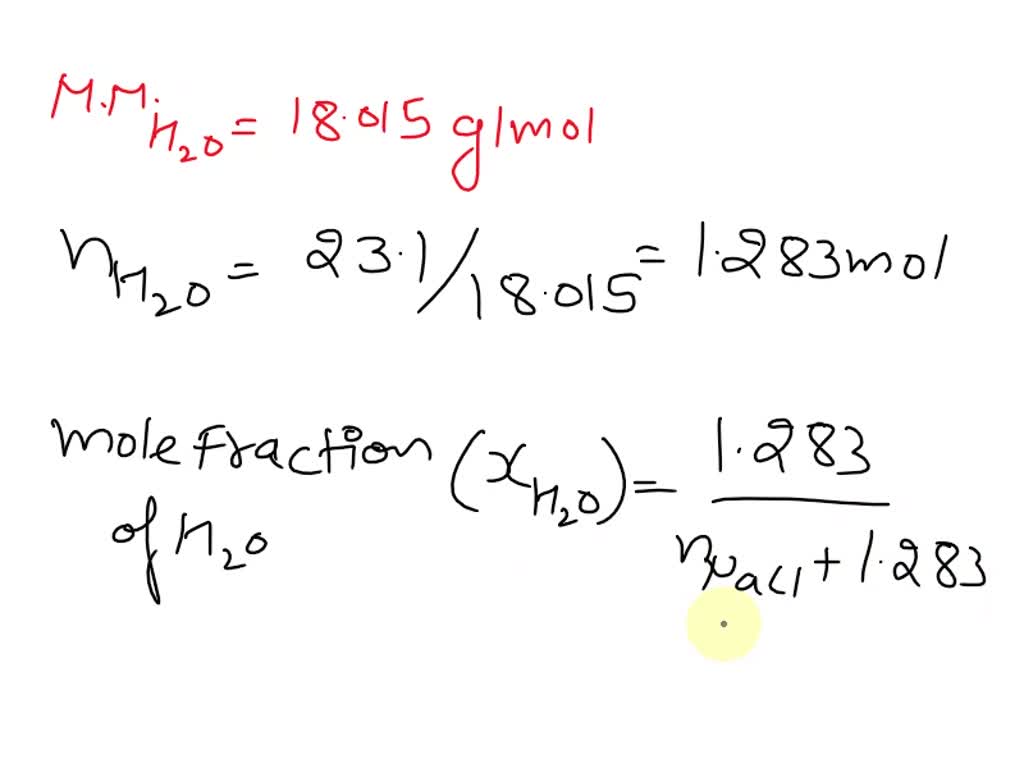 M.M. H₂O = 18.015 g/mol
nH₂O = 23.1/18.015 = 1.283 mol
mole fraction (xH₂O) = 1.283
of H₂O
nNaCl + 1.283